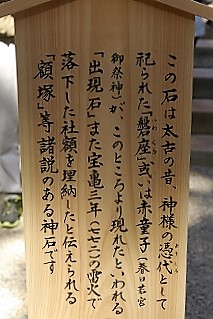 この石は太古の昔、神様の憑代として
祀られた「磐座」或いは赤童子（春日若宮
御祭神）が、このところより現れたといわれる
「出現石」また宝亀三年（七七二）の雷火で
落下した社額を埋納したと伝えられる
「額塚」等諸説のある神石です